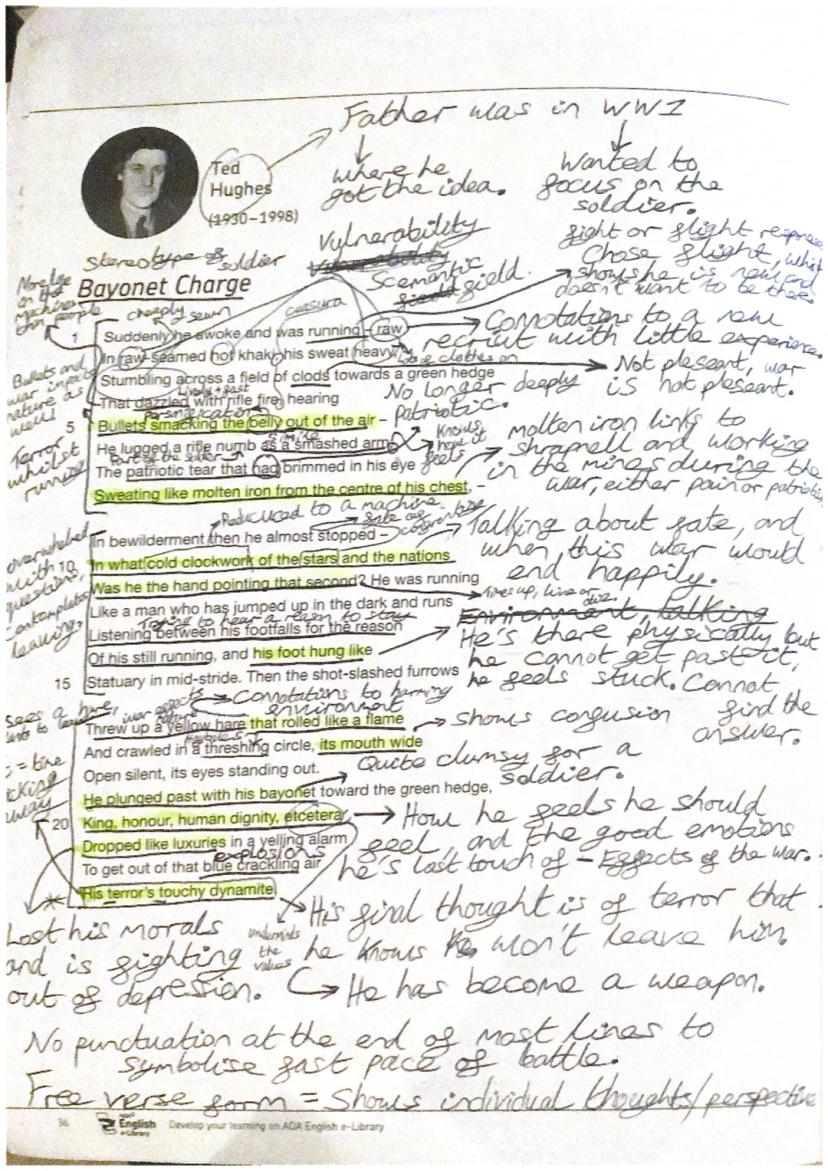 Father was in WW1
Ted
Hughes
(1930–1998)
where he
got the idea.
Wanted to
focus on the
soldier.
Stereotype of soldier
Vulnerability
Scemantic
field.
fight or flight response
Chose flight, which
shows he is new and
doesn't want to be there
More like
on the
machines
than people
Bayonet Charge
cheaply sewn
caesura
1
Suddenly he awoke and was running – raw
Connotations to a new
recruit with little experience.
In raw-seamed hot khaki, his sweat heavy,
lots of clothes on
Stumbling across a field of clods towards a green hedge
Not pleasent, war
is not pleasent.
Bullets and
war impacts
nature as
well
Lively + fast
That dazzled with rifle fire, hearing
No longer deeply
patriotic.
personification
5
Bullets smacking the belly out of the air –
simile
He lugged a rifle numb as a smashed arm;
Knows
how it
feels
molten iron links to
shrapnell and working
in the mines during the
war, either pain or patriotic
Terror
whilst
running
The patriotic tear that had brimmed in his eye
Sweating like molten iron from the centre of his chest, –
Reducued to a machine.
In bewilderment then he almost stopped –
Talking about fate, and
when this war would
end happily.
overwhelmed
with
questions,
contemplates
leaving.
10
In what cold clockwork of the stars and the nations
Was he the hand pointing that second? He was running
Like a man who has jumped up in the dark and runs
Trying to hear a reason to stay
Environment, talking
Listening between his footfalls for the reason
Of his still running, and his foot hung like
He's there physically but
he cannot get past it,
he feels stuck. Cannot
find the
answer.
15
Statuary in mid-stride. Then the shot-slashed furrows
Connotations to harming
environment
sees a hare,
Threw up a yellow hare that rolled like a flame
Shows confusion
And crawled in a threshing circle, its mouth wide
Open silent, its eyes standing out.
Quite clumsy for a
soldier.
He plunged past with his bayonet toward the green hedge,
20
King, honour, human dignity, etcetera
How he feels he should
feel, and the good emotions
he's last touch of – Effects of the war.
Dropped like luxuries in a yelling alarm
explosions
To get out of that blue crackling air
His terror's touchy dynamite.
His final thought is of terror that
he knows won't leave him.
He has become a weapon.
Lost his morals
and is fighting
out of depression.
the
values
No punctuation at the end of most lines to
symbolise fast pace of battle.
Free verse form = Shows individual thoughts/perspective
36
English
e-Library
Develop your learning on AQA English e-Library